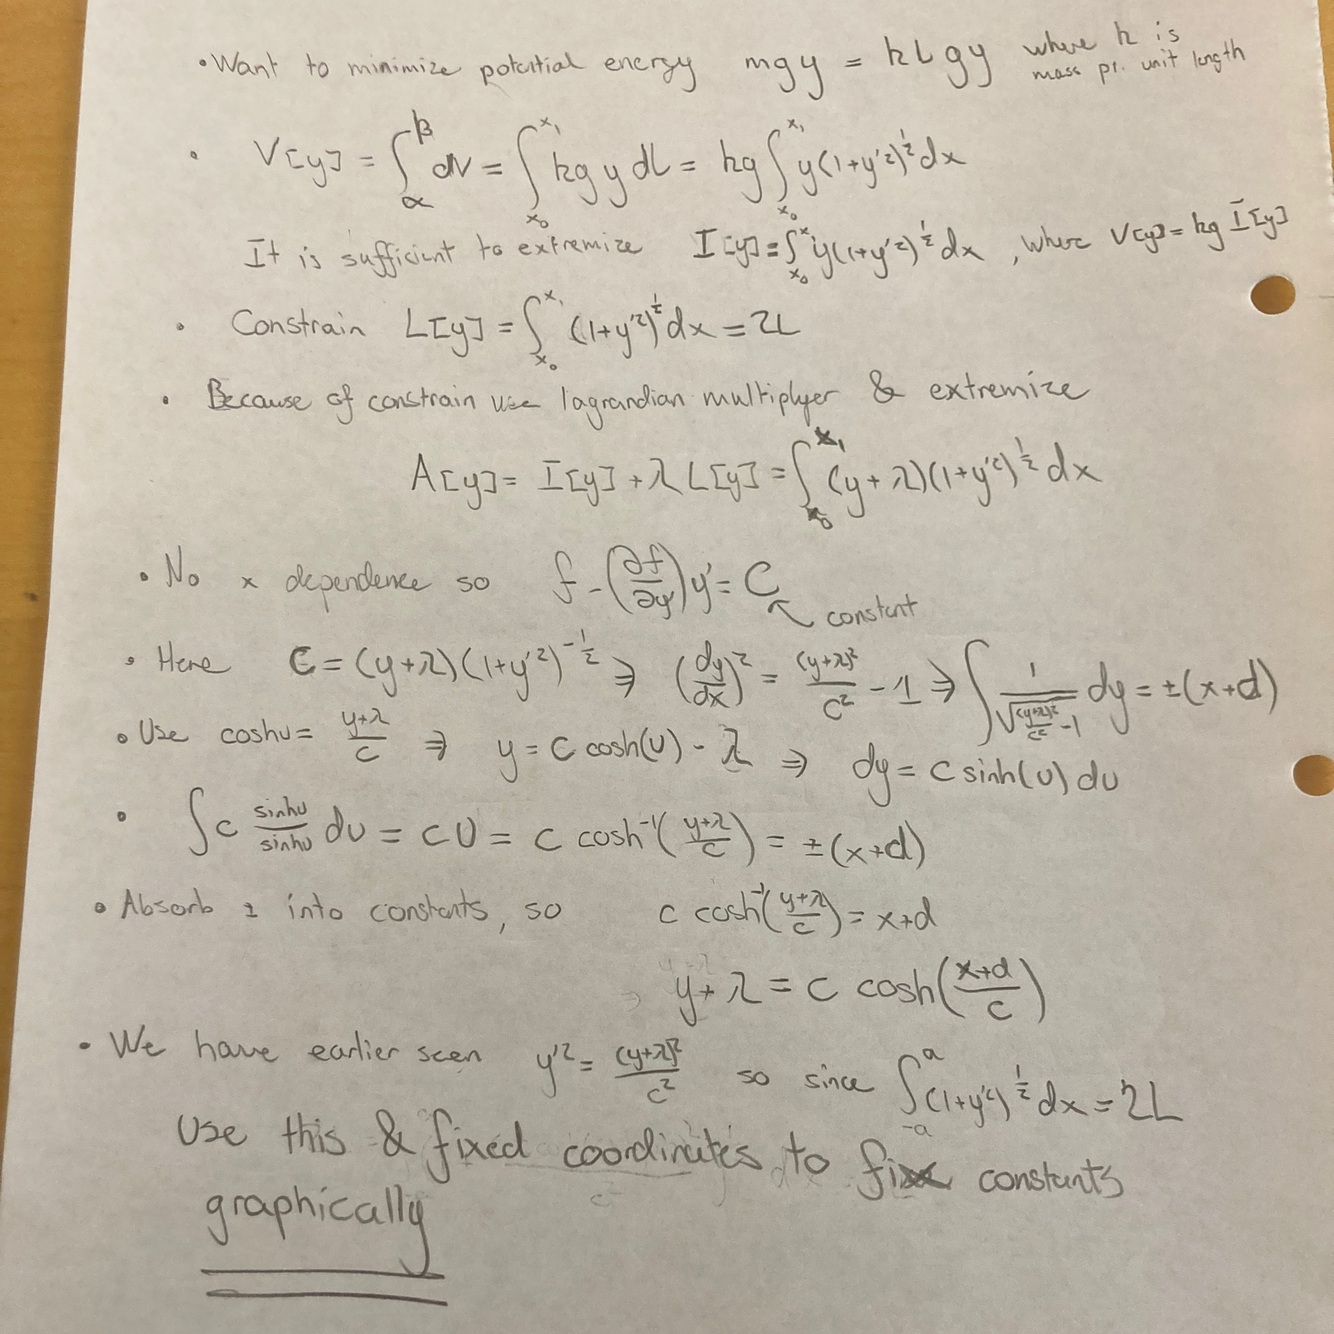 • Want to minimize potential energy mgy = kLgy where k is mass pr. unit length
• V[y] = ∫_α^β dV = ∫_{x₀}^{x₁} kg y dL = kg ∫_{x₀}^{x₁} y(1+y'²)^{1/2} dx
It is sufficient to extremize I[y] = ∫_{x₀}^{x₁} y(1+y'²)^{1/2} dx, where V[y] = kg I[y]
• Constrain L[y] = ∫_{x₀}^{x₁} (1+y'²)^{1/2} dx = 2L
• Because of constrain use lagrandian multiplyer & extremize
A[y] = I[y] + λL[y] = ∫_{x₀}^{x₁} (y+λ)(1+y'²)^{1/2} dx
• No x dependence so f - (∂f/∂y')y' = C
↖ constant
• Here C = (y+λ)(1+y'²)^{-1/2} ⇒ (dy/dx)² = (y+λ)²/c² - 1 ⇒ ∫ 1/√((y+λ)²/c² - 1) dy = ±(x+d)
• Use coshu = (y+λ)/c ⇒ y = c cosh(u) - λ ⇒ dy = c sinh(u) du
• ∫ c sinhu/sinhu du = cu = c cosh⁻¹((y+λ)/c) = ±(x+d)
• Absorb ± into constants, so c cosh⁻¹((y+λ)/c) = x+d
y+λ = c cosh((x+d)/c)
• We have earlier seen y'² = (y+λ)²/c² so since ∫_{-a}^{a} (1+y'²)^{1/2} dx = 2L
Use this & fixed coordinates to fix constants
graphically